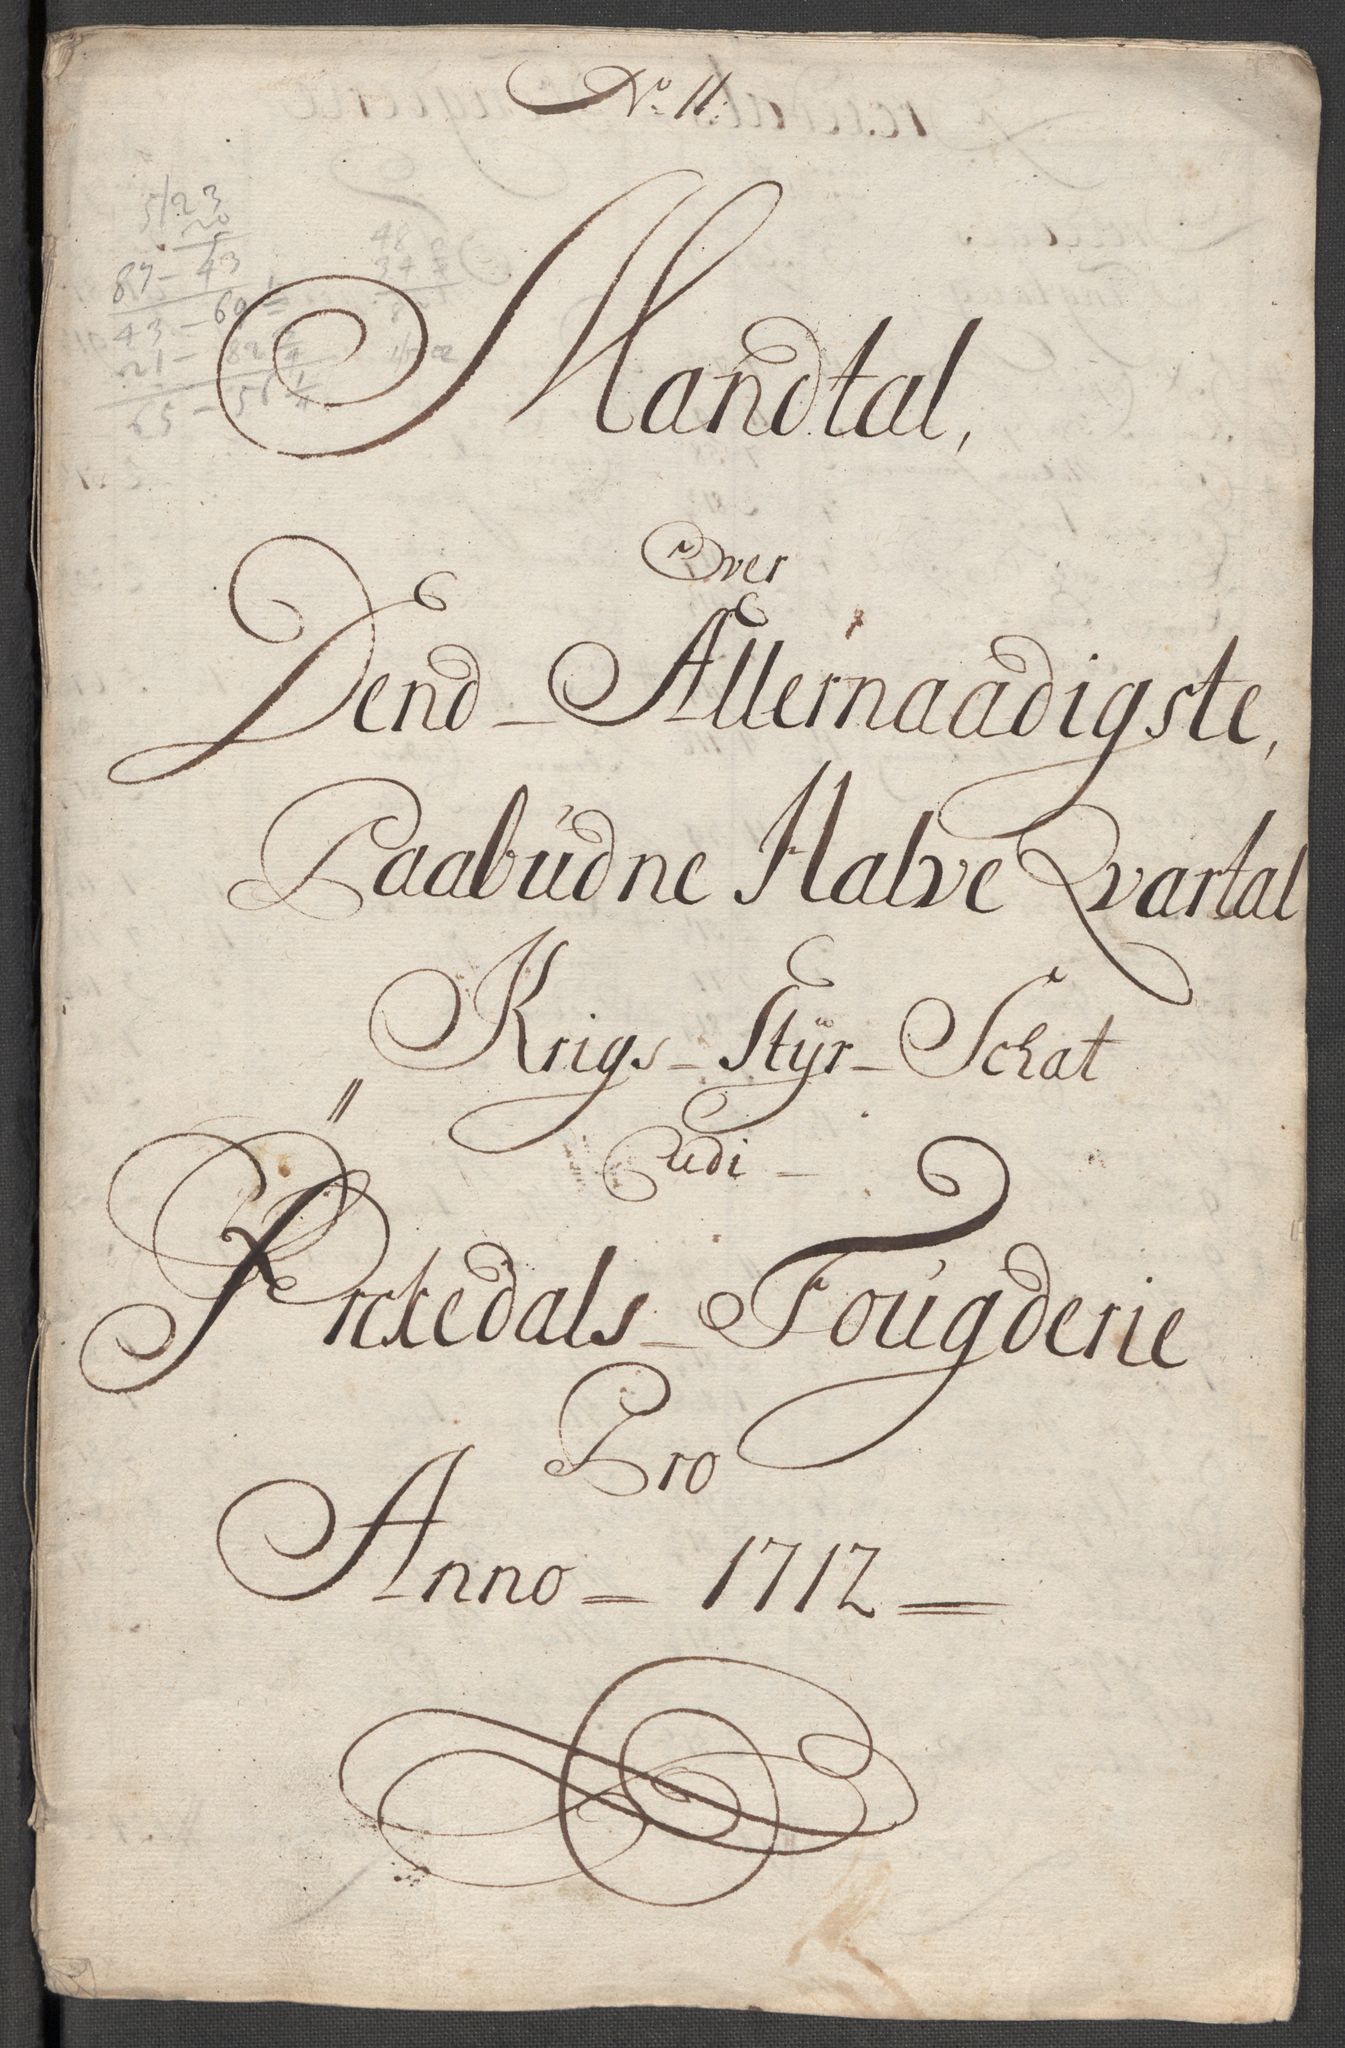 No 11.
5123
20
87 - 43
43 - 69 1/2
21 - 82 3/4
65 - 56 1/4
48
34
Mandtal,
Over
Dend - Allernaadigste,
Paabudne Halve Qvartal
Krigs - Styr - Schat
udi -
Orckedals - Fougderie
Pro
Anno = 1712 =